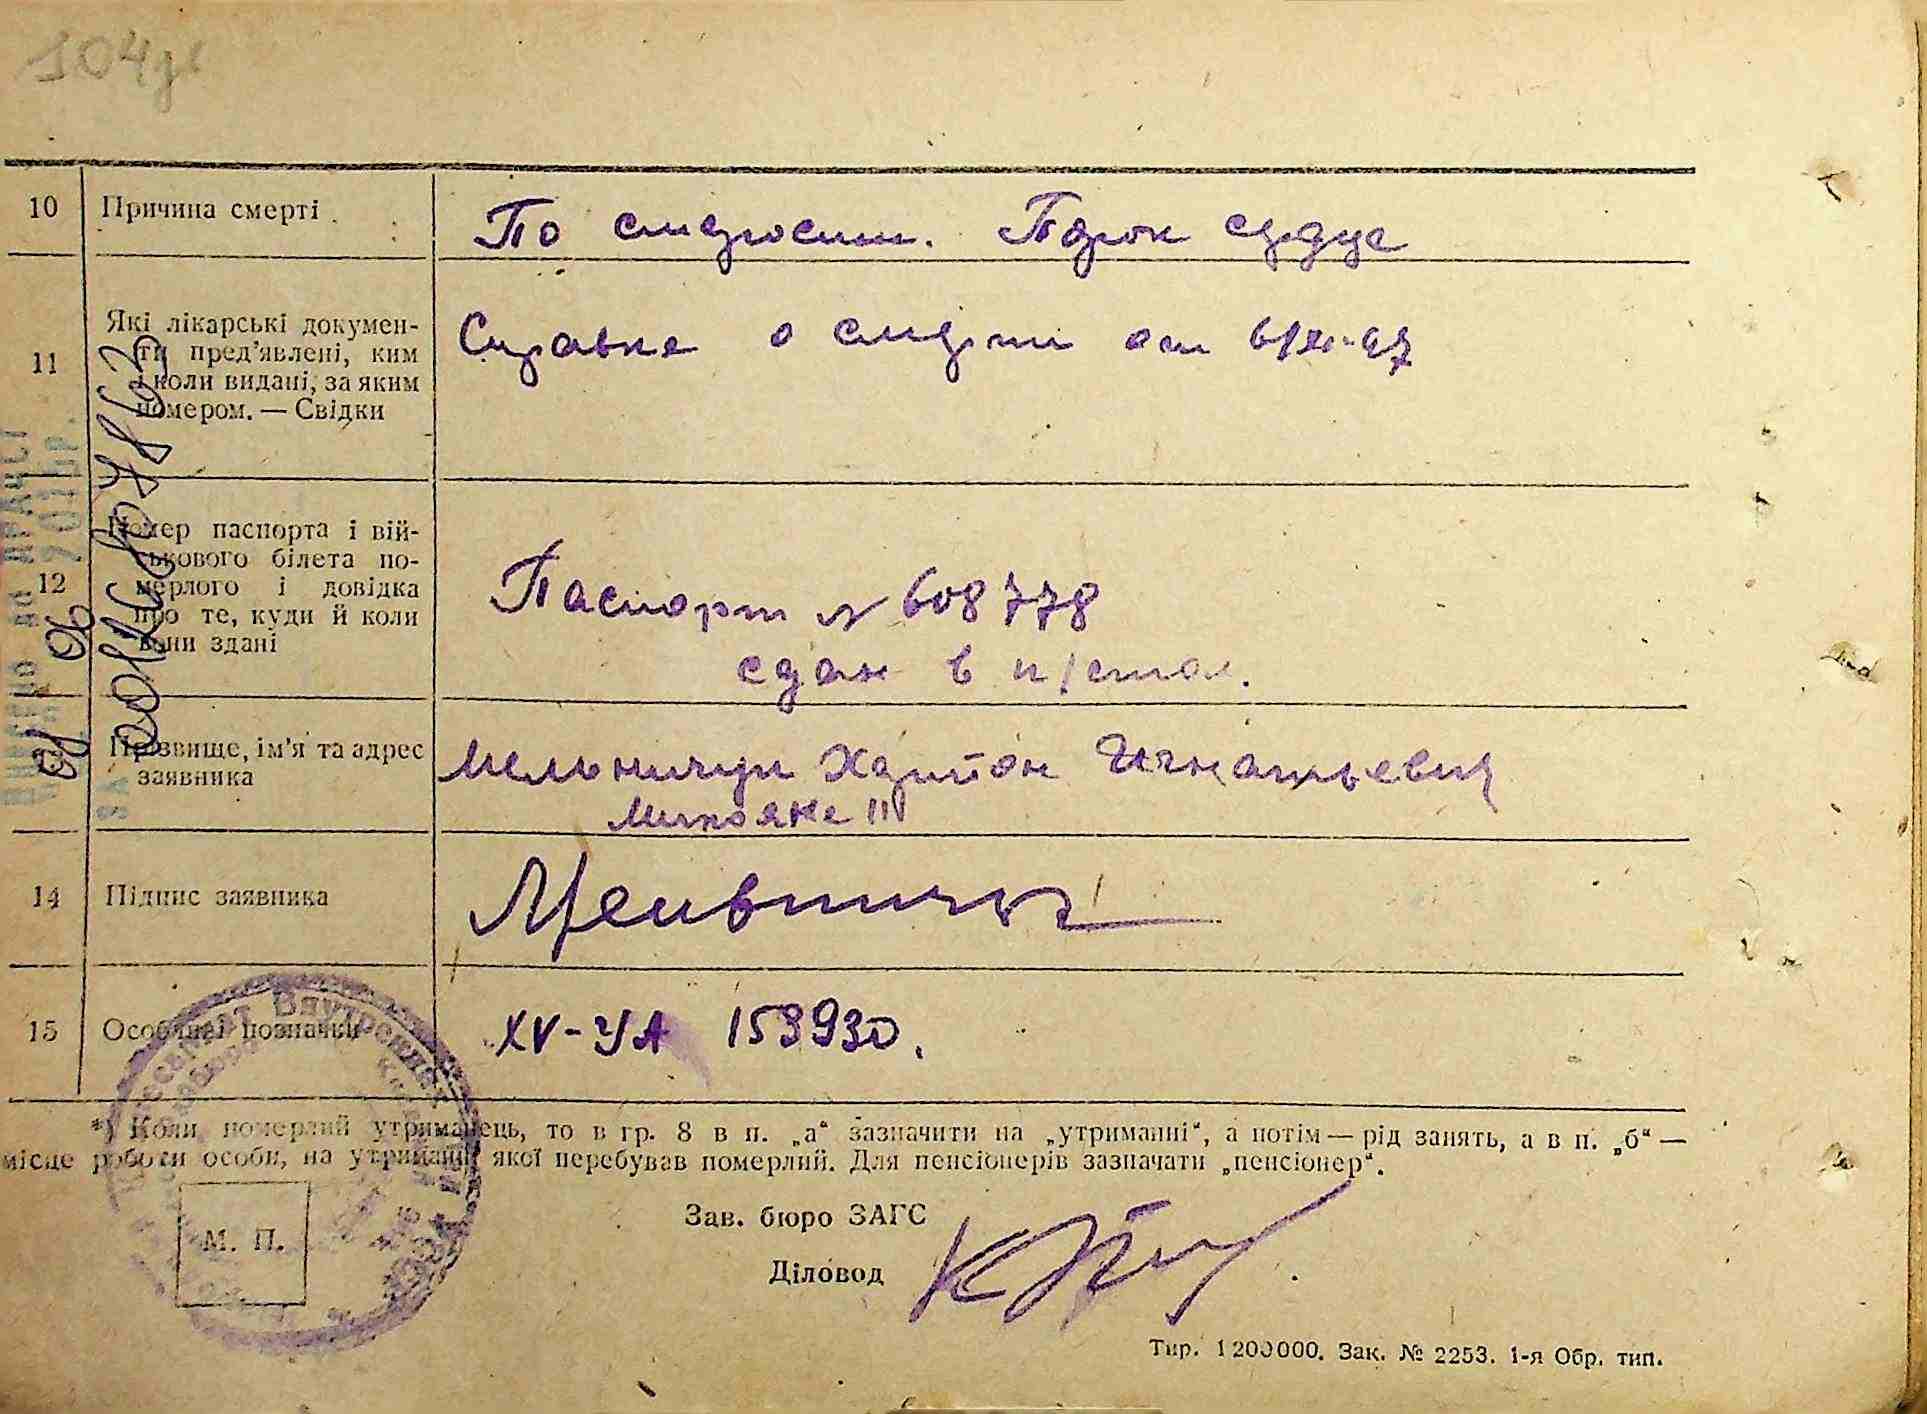 10 Причина смерті
По смертности. Порок сердца
11 Які лікарські докумен-
ти пред'явлені, ким
і коли видані, за яким
номером. — Свідки
Справка о смерти от 6/XI-47
12 Номер паспорта і вій-
ськового білета по-
мерлого і довідка
про те, куди й коли
вони здані
Паспорт № 608778
сдан в п/стол.
13 Прізвище, ім'я та адрес
заявника
Мельничук Харитон Игнатьевич
Микояна
14 Підпис заявника
15 Особливі позначки
XV-УА 153930.
*) Коли померлий утриманець, то в гр. 8 в п. „а“ зазначити на „утриманні“, а потім — рід занять, а в п. „б“ —
місце роботи особи, на утриманні якої перебував померлий. Для пенсіонерів зазначати „пенсіонер“.
М. П.
Зав. бюро ЗАГС
Діловод
Тир. 1200000. Зак. № 2253. 1-я Обр. тип.